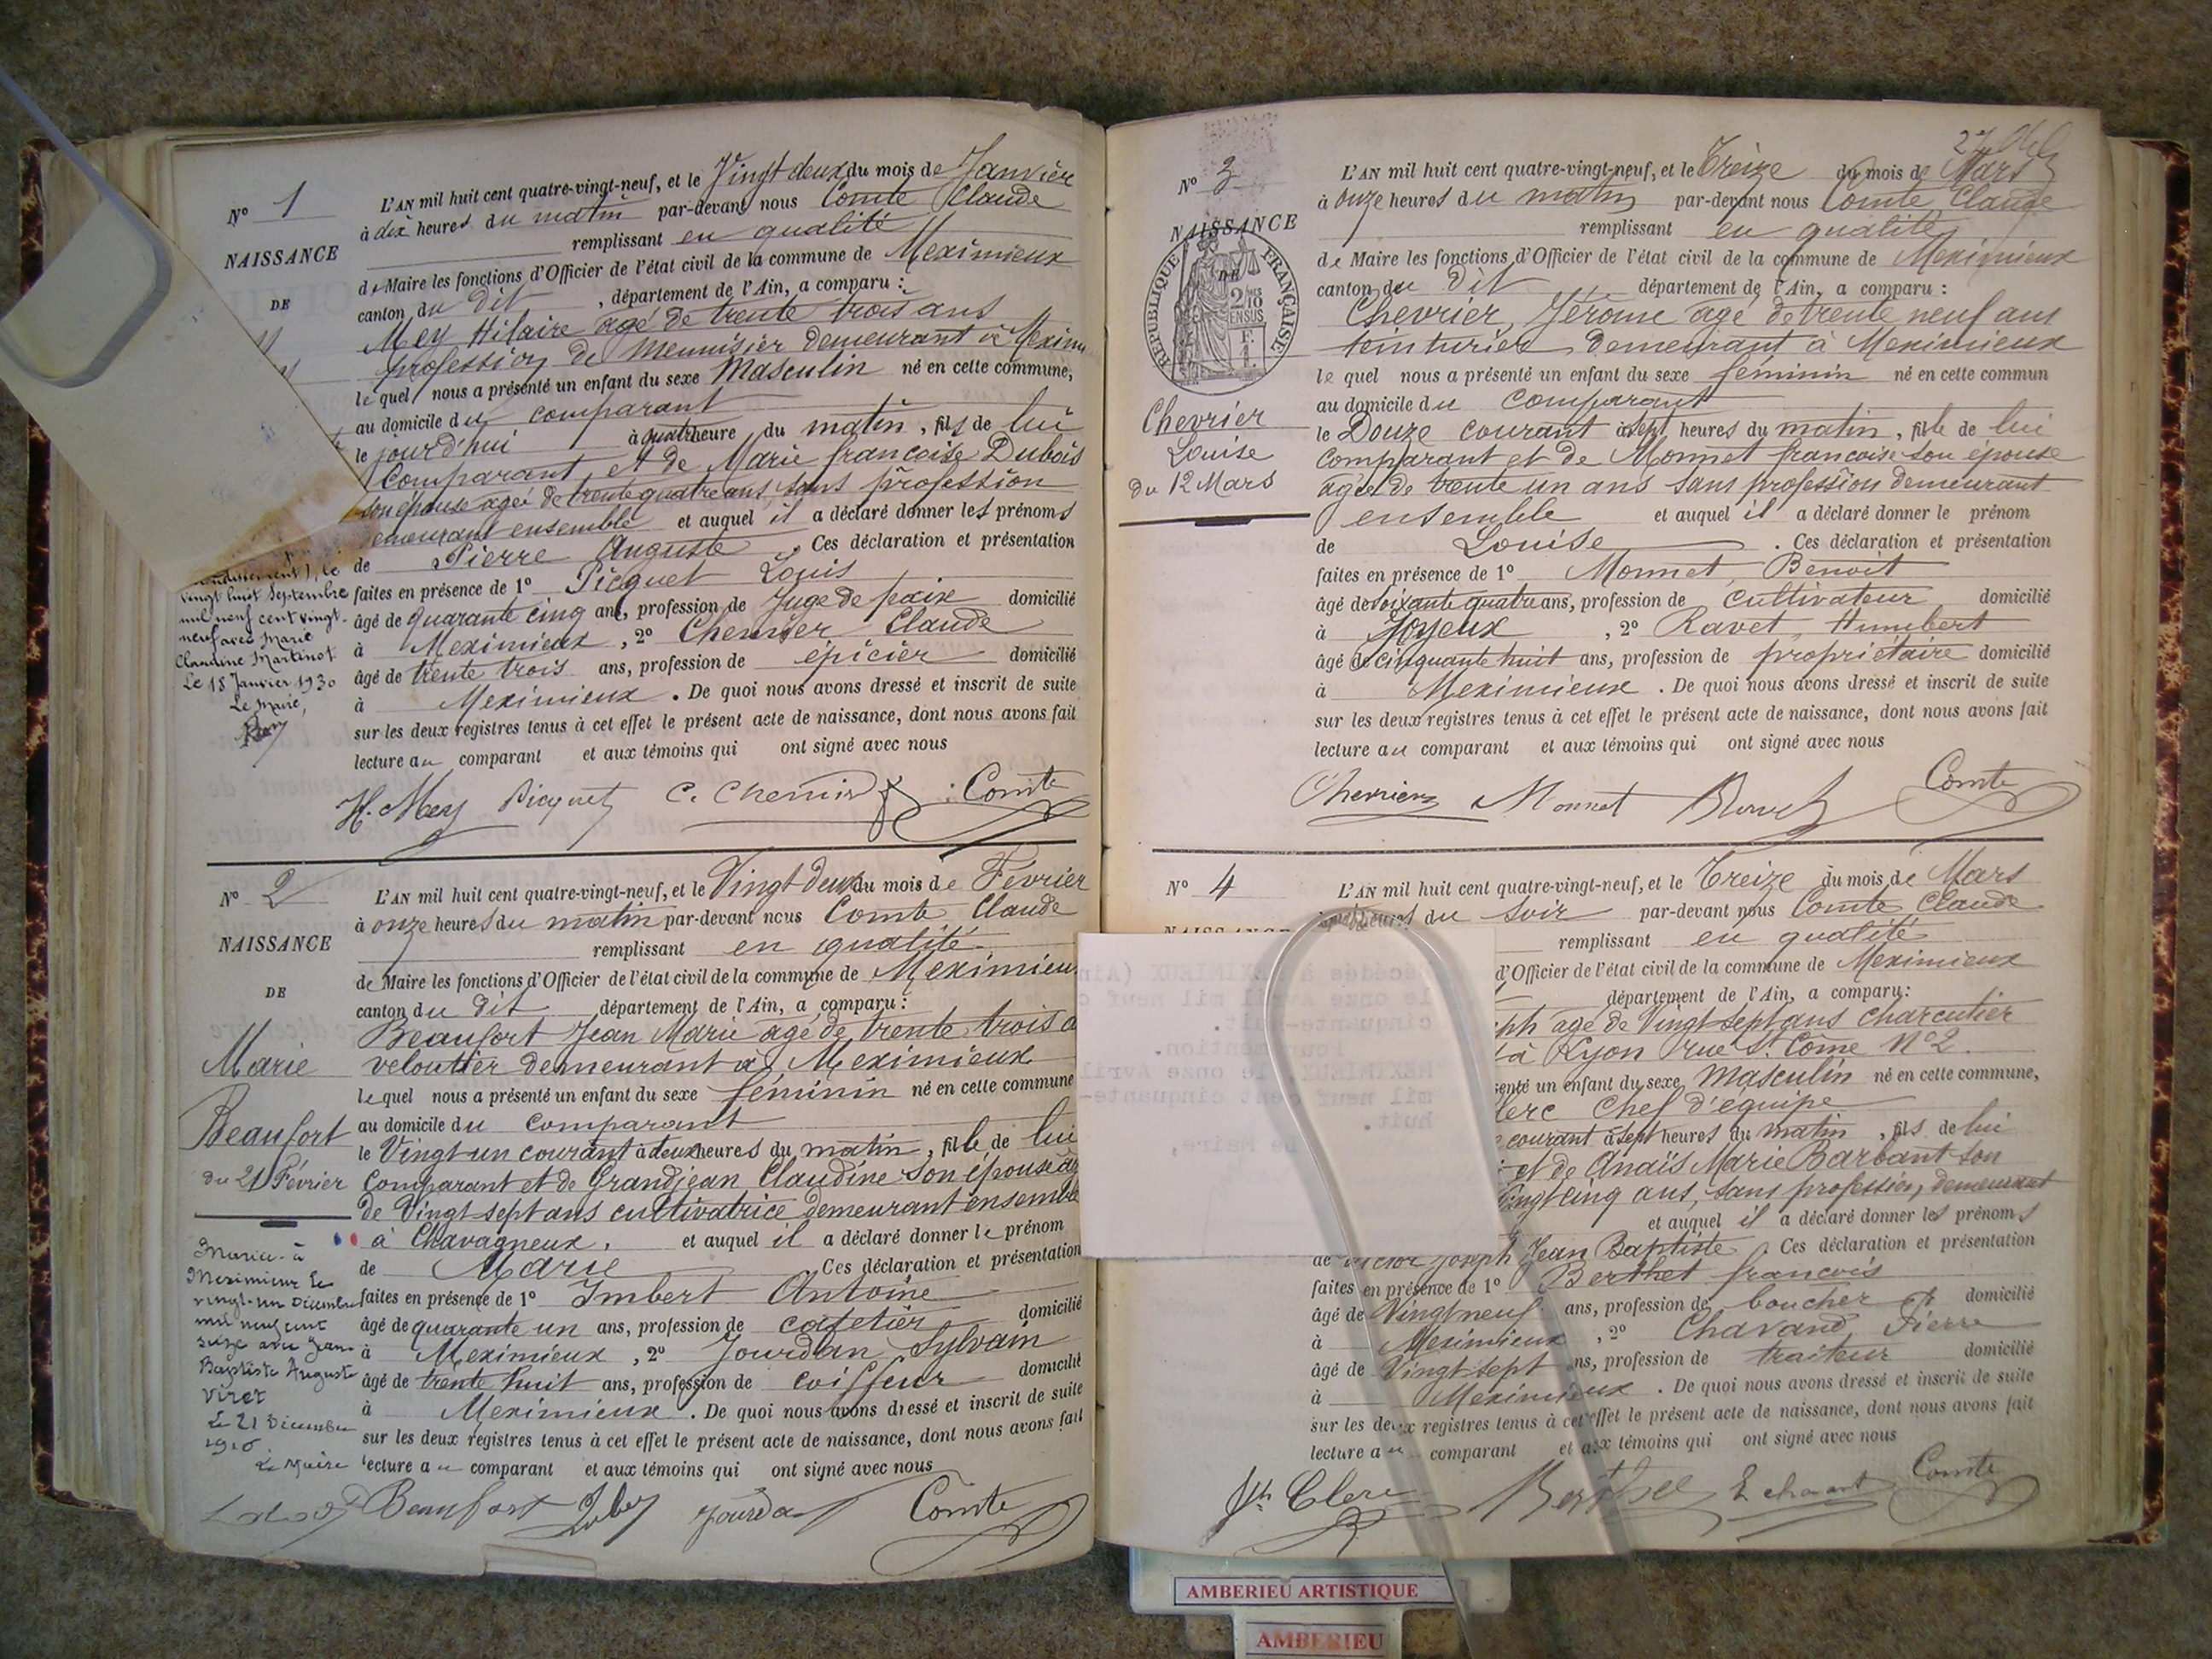 N° 1
NAISSANCE
DE
L'AN mil huit cent quatre-vingt-neuf, et le Vingt deux du mois de Janvier
à dix heures du matin par-devant nous Comte Claude
remplissant en qualité
de Maire les fonctions d'Officier de l'état civil de la commune de Meximieux
canton du dit, département de l'Ain, a comparu :
Mey Hilaire agé de trente trois ans
profession de Menuisier demeurant à Meximi
lequel nous a présenté un enfant du sexe Masculin né en cette commune,
au domicile du comparant
le jourd'hui à quatre heure du matin, fils de lui
Comparant et de Marie françoise Dubois
son épouse agée de trente quatre ans, sans profession
emeurant ensemble et auquel il a déclaré donner les prénoms
de Pierre Auguste. Ces déclaration et présentation
faites en présence de 1° Picquet Louis
âgé de quarante cinq ans, profession de Juge de paix domicilié
à Meximieux, 2° Chemier Claude
âgé de trente trois ans, profession de épicier domicilié
à Meximieux. De quoi nous avons dressé et inscrit de suite
sur les deux registres tenus à cet effet le présent acte de naissance, dont nous avons fait
lecture au comparant et aux témoins qui ont signé avec nous
ondissement), le
vingt huit Septembre
mil neuf cent vingt-
neuf avec Marie
Claudine Martinot
Le 18 Janvier 1930
Le Maire,
H. Mey Picquet C. Chemier Comte
N° 2
NAISSANCE
DE
Marie
Beaufort
du 21 Février
L'AN mil huit cent quatre-vingt-neuf, et le Vingt deux du mois de Février
à onze heures du matin par-devant nous Comte Claude
remplissant en qualité
de Maire les fonctions d'Officier de l'état civil de la commune de Meximieu
canton du dit département de l'Ain, a comparu :
Beaufort Jean Marie agé de trente trois a
veloutier demeurant à Meximieux
lequel nous a présenté un enfant du sexe féminin né en cette commune
au domicile du comparant
le Vingt un courant à deux heures du matin, fille de lui
Comparant et de Grandjean Claudine son épouse ag
de Vingt sept ans cultivatrice demeurant ensemble
à Chavagneux. et auquel il a déclaré donner le prénom
de Marie Ces déclaration et présentation
faites en présence de 1° Imbert Antoine
âgé de quarante un ans, profession de cafetier domicilié
à Meximieux, 2° Jourdan Sylvain
âgé de trente huit ans, profession de coiffeur domicilié
à Meximieux. De quoi nous avons dressé et inscrit de suite
sur les deux registres tenus à cet effet le présent acte de naissance, dont nous avons fait
lecture au comparant et aux témoins qui ont signé avec nous
Mariée à
Meximieux le
vingt-un Décembre
mil neuf cent
seize avec Jean
Baptiste Auguste
Viret
Le 21 Décembre
1916.
Le Maire
Beaufort Jourda Comte
N° 3
NAISSANCE
DE
RÉPUBLIQUE FRANÇAISE
Chevrier
Louise
du 12 Mars
L'AN mil huit cent quatre-vingt-neuf, et le Treize du mois de Mars
à onze heures du matin par-devant nous Comte Claude
remplissant en qualité
de Maire les fonctions d'Officier de l'état civil de la commune de Meximieux
canton du dit département de l'Ain, a comparu :
Chevrier, Jérôme agé de trente neuf ans
teinturier demeurant à Meximieux
lequel nous a présenté un enfant du sexe féminin né en cette commun
au domicile du comparant
le Douze courant à sept heures du matin, fille de lui
comparant et de Monnet françoise son épouse
agée de trente un ans sans profession demeurant
ensemble et auquel il a déclaré donner le prénom
de Louise. Ces déclaration et présentation
faites en présence de 1° Monnet, Benoit
âgé de soixante quatre ans, profession de cultivateur domicilié
à Joyeux, 2° Ravet, Humbert
âgé de cinquante huit ans, profession de propriétaire domicilié
à Meximieux. De quoi nous avons dressé et inscrit de suite
sur les deux registres tenus à cet effet le présent acte de naissance, dont nous avons fait
lecture au comparant et aux témoins qui ont signé avec nous
Chevrier Monnet Ravet Comte
N° 4
L'AN mil huit cent quatre-vingt-neuf, et le Treize du mois de Mars
heures du soir par-devant nous Comte Claude
remplissant en qualité
d'Officier de l'état civil de la commune de Meximieux
département de l'Ain, a comparu:
eph agé de Vingt sept ans charcutier
à Lyon rue St. Côme N° 2.
senté un enfant du sexe Masculin né en cette commune,
lerc chef d'équipe
courant à sept heures du matin, fils de lui
et de Anaïs Marie Barbant son
Vingt cinq ans, sans profession, demeurant
et auquel il a déclaré donner les prénoms
de Victor Joseph Jean Baptiste. Ces déclaration et présentation
faites en présence de 1° Berthet françois
âgé de Vingt neuf ans, profession de boucher domicilié
à Meximieux, 2° Chavand Pierre
âgé de Vingt sept ans, profession de traiteur domicilié
à Meximieux. De quoi nous avons dressé et inscrit de suite
sur les deux registres tenus à cet effet le présent acte de naissance, dont nous avons fait
lecture au comparant et aux témoins qui ont signé avec nous
Jh Clerc Berthet Comte
AMBERIEU ARTISTIQUE
AMBERIEU